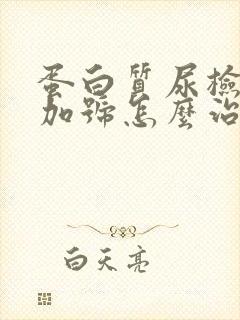 蛋白質尿檢
加號怎麼治
白天亮